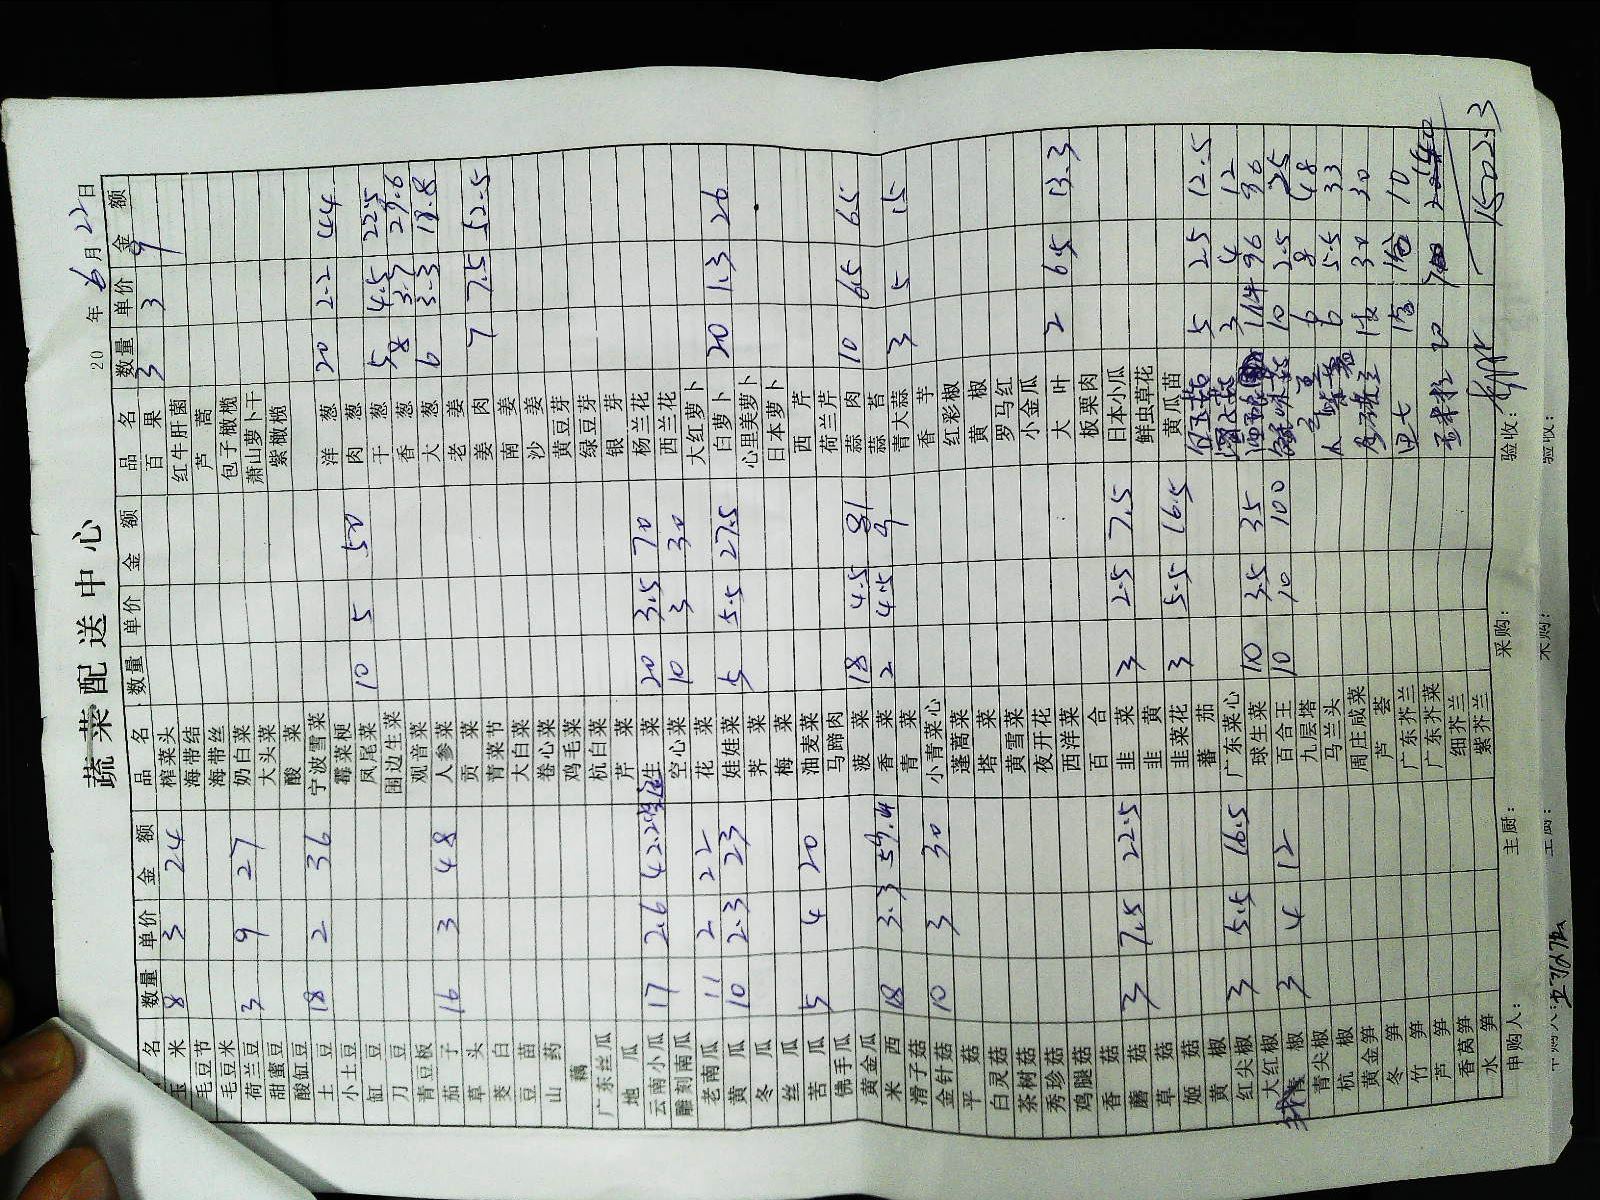 蔬菜配送中心
20 年 6 月 22 日
品名 数量 单价 金额
玉米 8 3 24
毛豆节
毛豆米
荷兰豆 3 9 27
甜蜜豆
酸缸豆
土豆 18 2 36
小土豆
缸豆
刀豆
青豆板
茄子 16 3 48
草头
茭白
豆苗
山药
藕
广东丝瓜
地瓜
云南小瓜 17 2.6 42.2
雕刻南瓜
老南瓜 11 2 22
黄瓜 10 2.3 23
冬瓜
丝瓜
苦瓜 5 4 20
佛手瓜
黄金瓜
米西 18 3.3 59.4
滑子菇
金针菇 10 3 30
平菇
白灵菇
茶树菇
秀珍菇
鸡腿菇
香菇
蘑菇 3 7.5 22.5
草菇
姬菇
黄椒
红尖椒 3 5.5 16.5
大红椒
椒 3 4 12
青尖椒
杭椒
黄金笋
冬笋
竹笋
芦笋
香莴笋
水笋
品名 数量 单价 金额
榨菜头
海带结
海带丝
奶白菜
大头菜
酸菜
宁波雪菜
霉菜梗
凤尾菜 10 5 50
围边生菜
观音菜
人参菜
贡菜
青菜节
大白菜
卷心菜
鸡毛菜
杭白菜
芹菜
生菜 20 3.5 70
空心菜 10 3 30
花菜
娃娃菜 5 5.5 27.5
荠菜
梅菜
油麦菜
马蹄肉
菠菜 18 4.5 81
香菜 2 4.5 9
青菜
小青菜心
蓬蒿菜
塔菜
黄雪菜
夜开花
西洋菜
百合
韭菜 3 2.5 7.5
韭黄
韭菜花 3 5.5 16.5
蕃茄
广东菜心
球生菜 10 3.5 35
百合王 10 10 100
九层塔
马兰头
周庄咸菜
芦荟
广东芥兰
广东芥菜
细芥兰
紫芥兰
品名 数量 单价 金额
百果 3 3 9
红牛肝菌
芦蒿
包子橄榄
萧山萝卜干
紫橄榄
洋葱 20 2.2 44
肉葱
干葱 5 4.5 22.5
香葱 8 3.7 29.6
大葱 6 3.3 19.8
老姜
姜肉 7 7.5 52.5
南姜
沙姜
黄豆芽
绿豆芽
银芽
杨兰花
西兰花
大红萝卜
白萝卜 20 1.3 26
心里美萝卜
日本萝卜
西芹
荷兰芹
蒜肉 10 6.5 65
蒜苔
青大蒜 3 5 15
香芋
红彩椒
黄椒
罗马红
小金瓜
大叶 2 6.5 13.3
板栗肉
日本小瓜
鲜虫草花
黄瓜苗
白玉菇 5 2.5 12.5
3 4 12
1件 96 96
10 2.5 25
6 8 48
6 5.5 33
30 30
田七 10
1502.3
申购人: 主厨: 采购: 验收:
主厨: 采购: 验收: